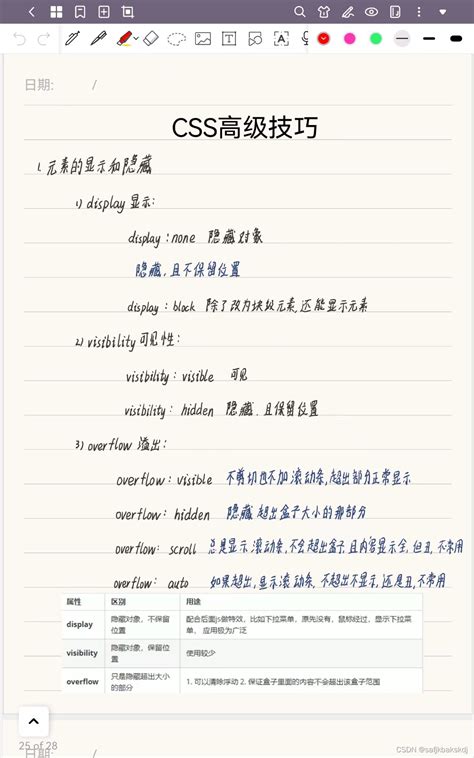 日期: /
CSS高级技巧
1. 元素的显示和隐藏
1) display 显示:
display : none 隐藏对象
隐藏, 且不保留位置
display : block 除了改为块级元素, 还能显示元素
2) visibility 可见性:
visibility : visible 可见
visibility : hidden 隐藏, 且保留位置
3) overflow 溢出:
overflow : visible 不剪切也不加滚动条, 超出部分正常显示
overflow : hidden 隐藏超出盒子大小的那部分
overflow : scroll 总是显示滚动条, 不会超出盒子, 且内容显示全, 但丑, 不常用
overflow : auto 如果超出, 显示滚动条, 不超出不显示, 还是丑, 不常用
属性 区别 用途
display 隐藏对象，不保留位置 配合后面js做特效，比如下拉菜单，原先没有，鼠标经过，显示下拉菜单， 应用极为广泛
visibility 隐藏对象，保留位置 使用较少
overflow 只是隐藏超出大小的部分 1. 可以清除浮动 2. 保证盒子里面的内容不会超出该盒子范围
25 of 28
日期: /